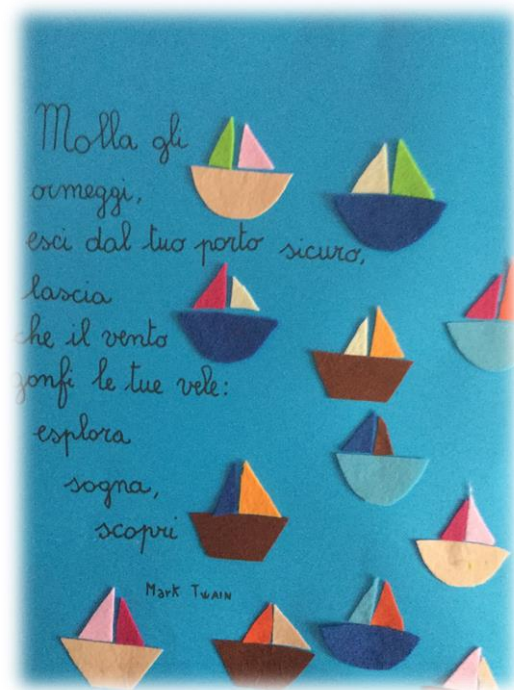 Molla gli
ormeggi,
esci dal tuo porto sicuro,
lascia
che il vento
gonfi le tue vele:
esplora
sogna,
scopri
Mark TWAIN